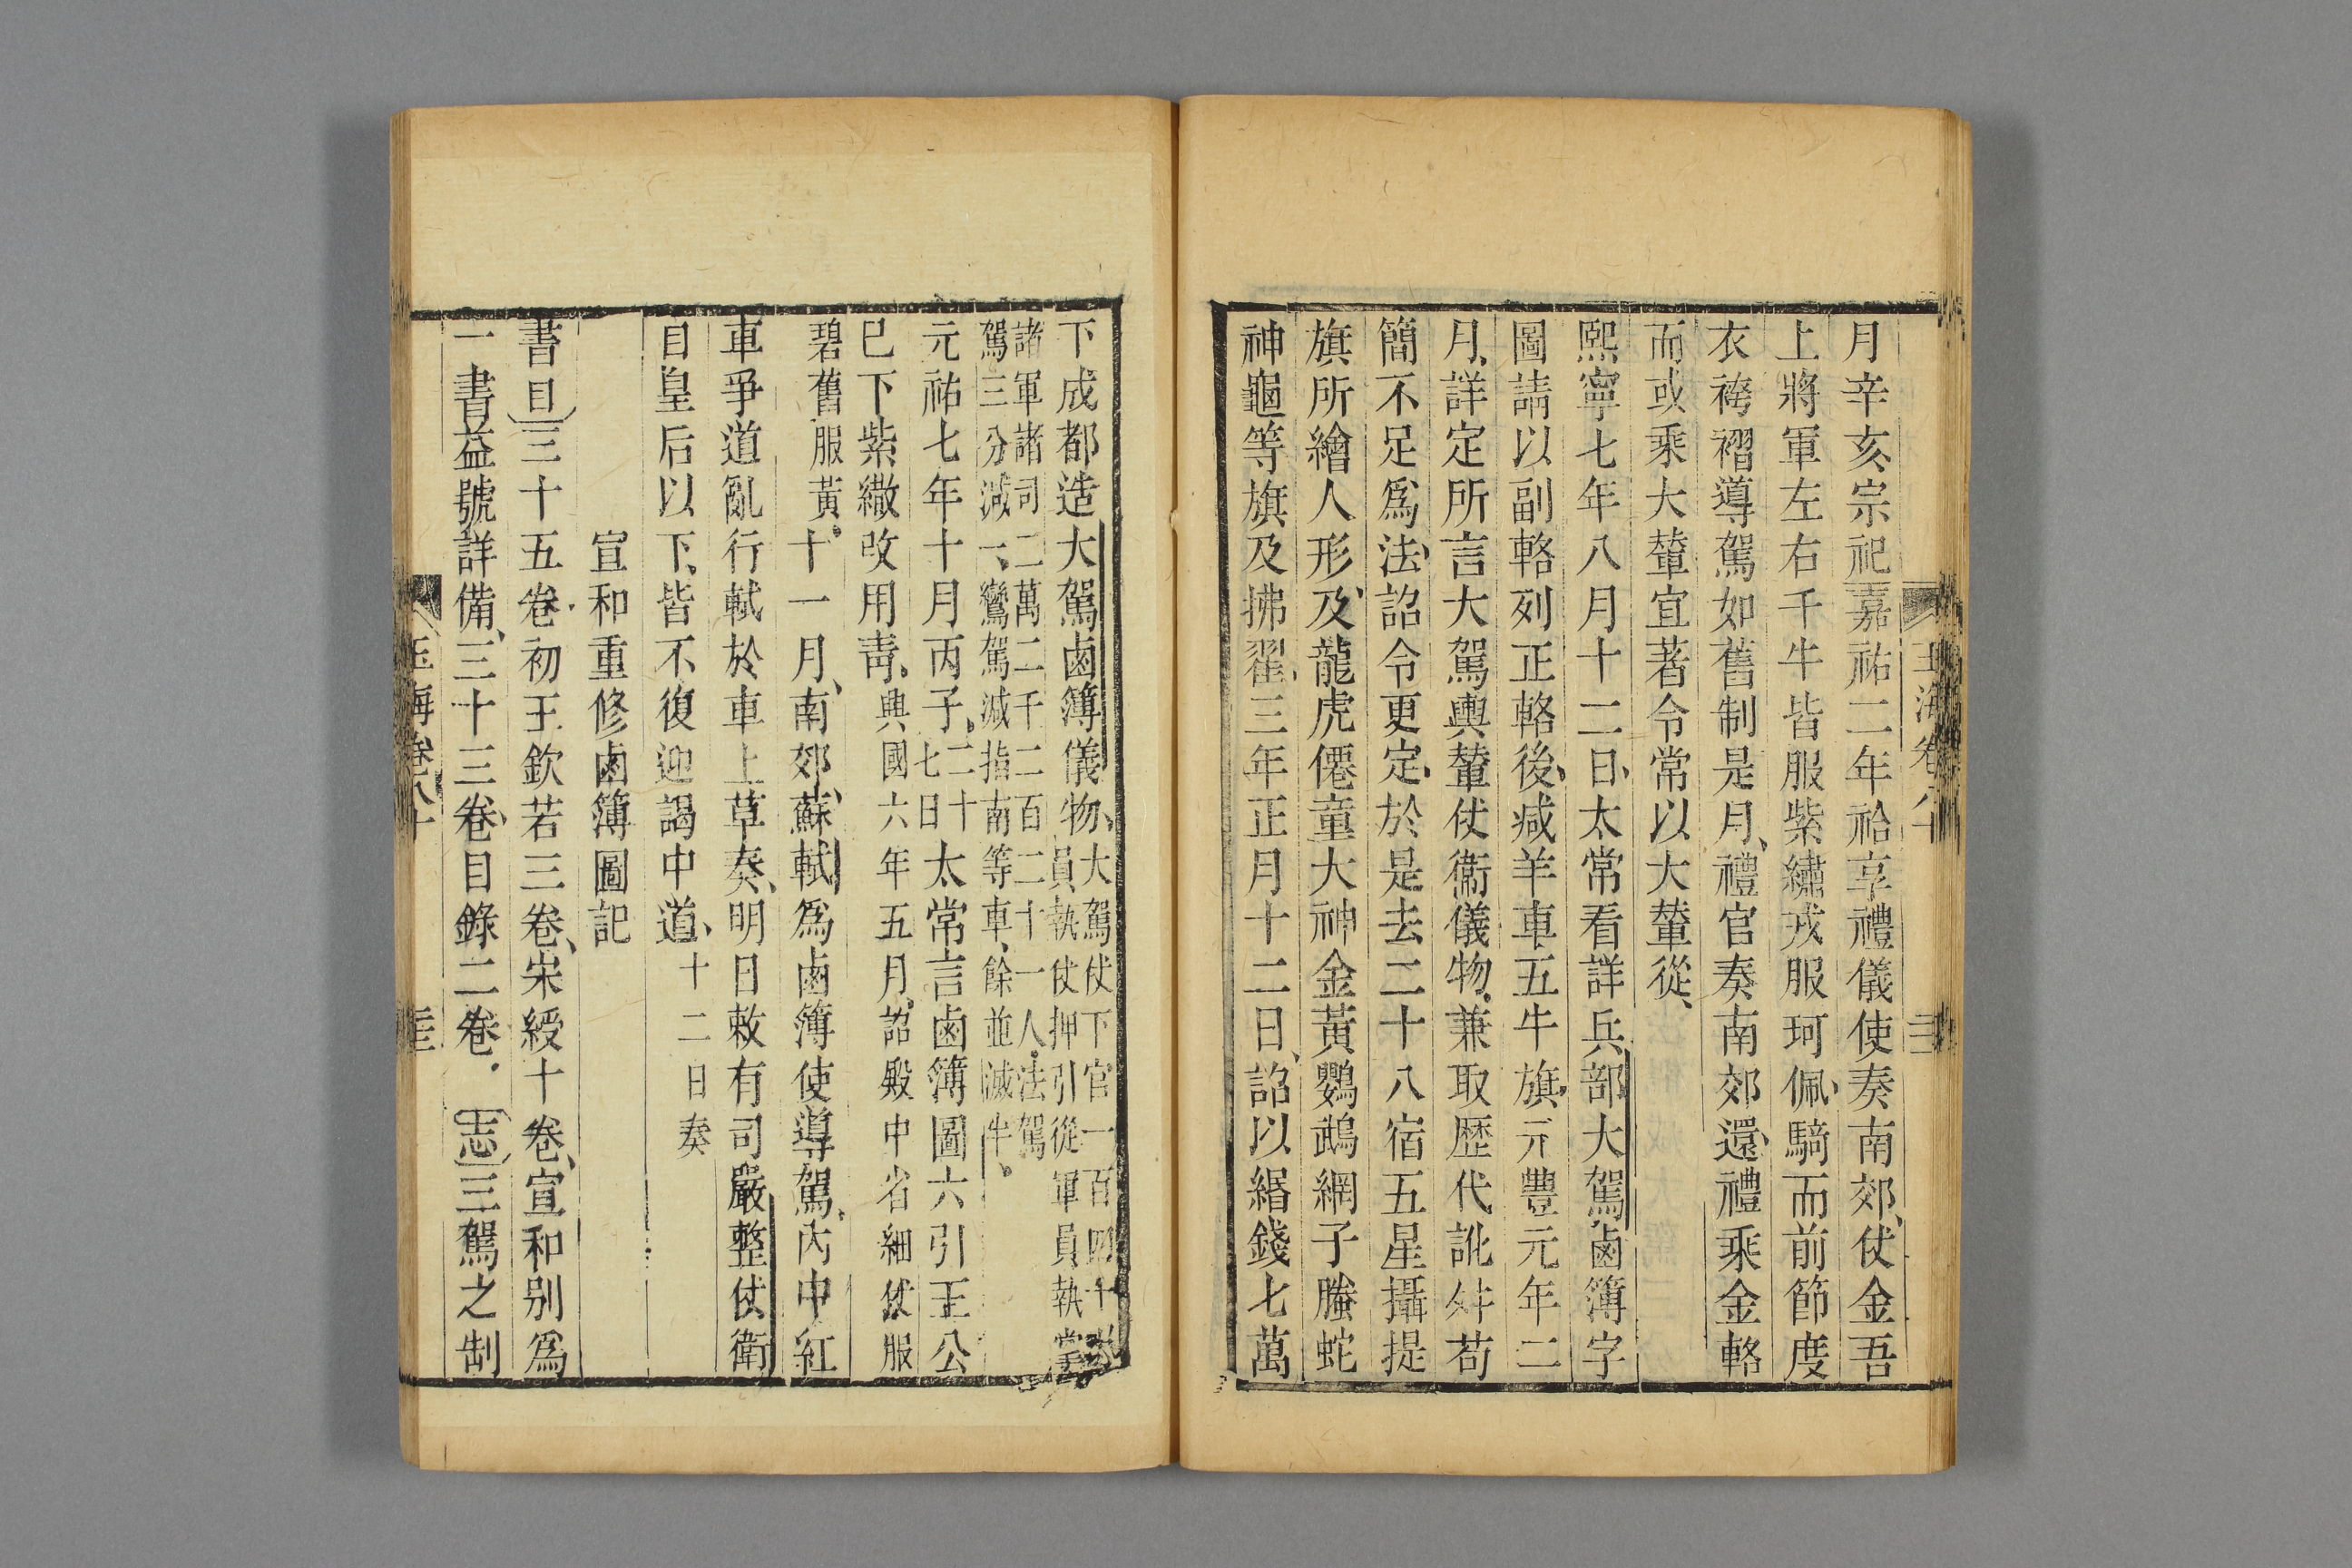 玉海卷八十
月辛亥、宗祀嘉祐二年祫享禮儀使奏南郊、仗金吾
上將軍左右千牛皆服紫繡戎服珂佩、騎而前節度
衣袴褶導駕如舊制是月、禮官奏南郊還、禮乘金輅
而或乘大輦宜著令常以大輦從、
熙寧七年八月十二日、太常看詳兵部大駕鹵簿字
圖請以副輅列正輅後、减羊車五牛旗、元豐元年二
月、詳定所言大駕輿輦仗衞儀物、兼取歴代訛舛苟
簡不足爲法、詔令更定、於是去二十八宿五星攝提
旗所繪人形、及龍虎僊童大神金黃鸚鵡網子螣蛇
神龜等旗及拂翟、三年正月十二日、詔以緡錢七萬
下成都造大駕鹵簿儀物、大駕仗下官一百四十
員執仗押引從軍員執掌
諸軍諸司二萬二千二百二十一人、法駕
駕三分减一、鸞駕减指南等車、餘並减牛、
元祐七年十月丙子、二十
七日太常言鹵簿圖六引王公
已下紫繖改用靑、興國六年五月、詔殿中省細仗服
碧舊服黃、十一月、南郊、蘇軾爲鹵簿使導駕、內中紅
車爭道亂行軾於車上草奏、明日敕有司嚴整仗衛
自皇后以下、皆不復迎謁中道、十二日奏
宣和重修鹵簿圖記
書目三十五卷初王欽若三卷、宋綬十卷、宣和别爲
一書益號詳備、三十三卷、目錄二卷、志三駕之制
玉海卷八十